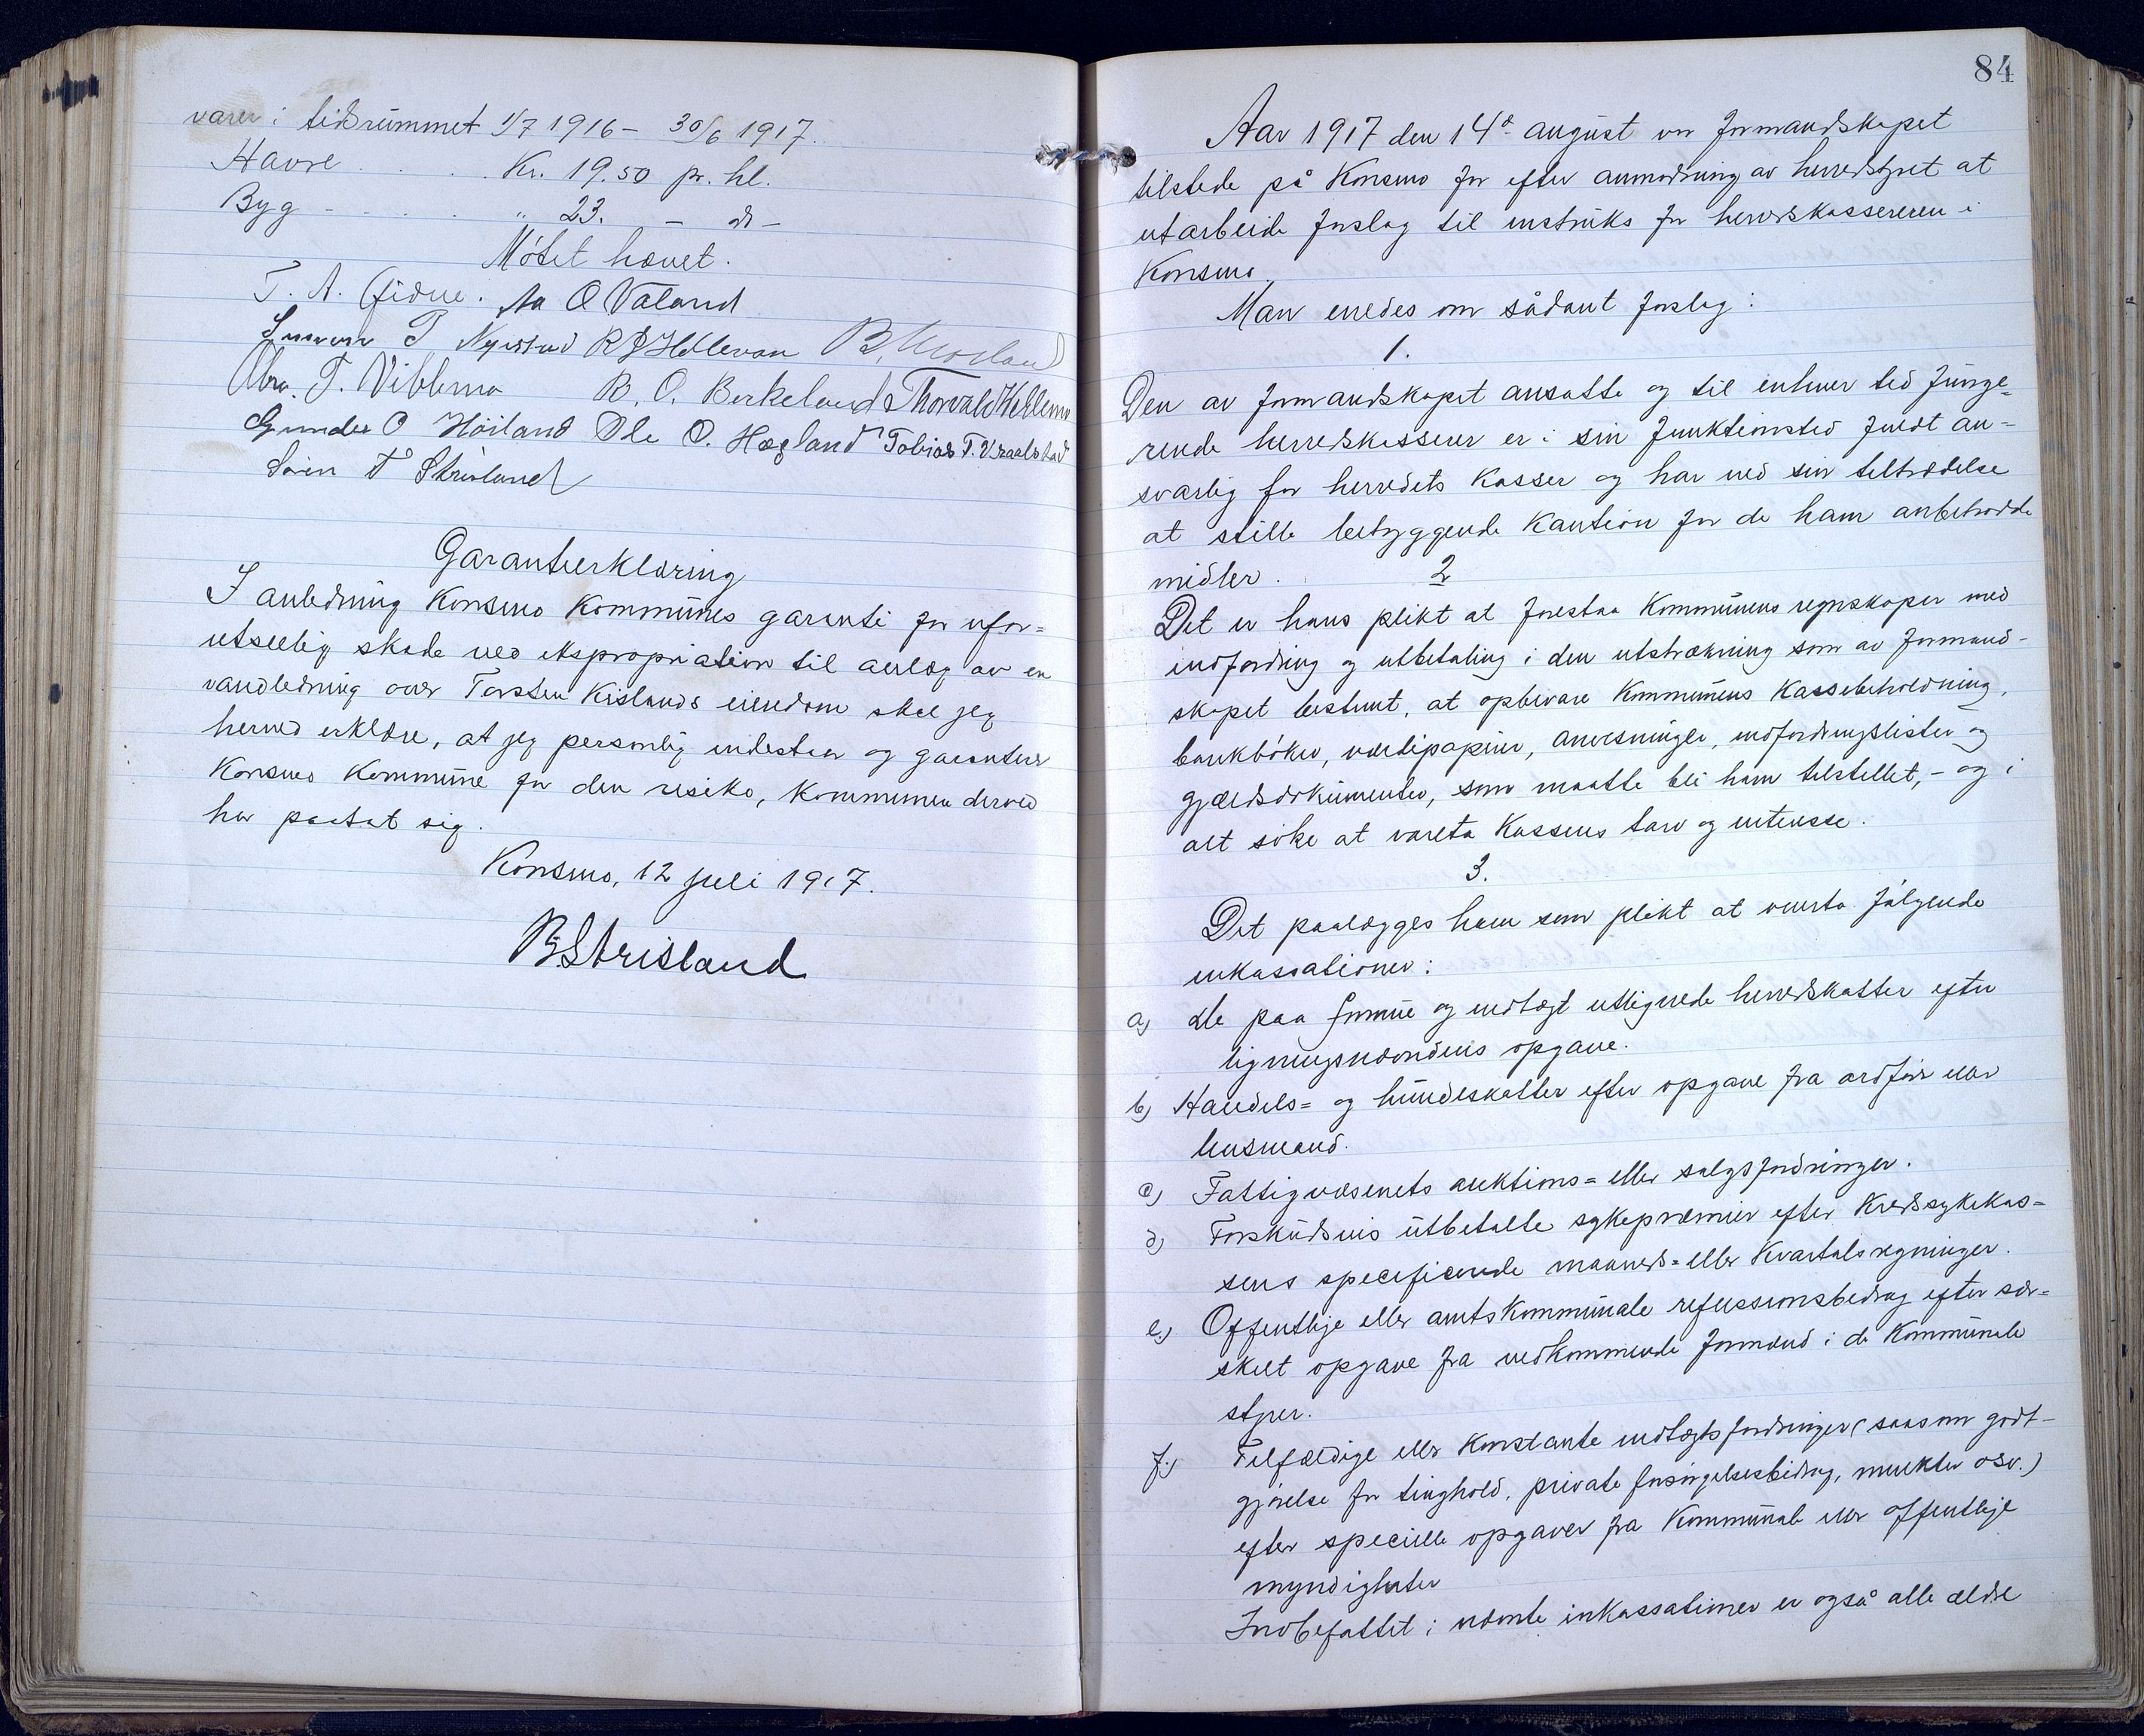 varer i tidsrummet 1/7 1916 - 30/6 1917.
Havre . . . . . Kr. 19.50 pr. hl.
Byg - . . . . " 23. - do -
Mötet hævet.
T. A. Eidne. Aa O Valand
P Nyestad R J Hellevan B. Mosland
Abr. T. Vibbmo B. O. Birkeland Thorvald Hellemo
Gunder O Höiland Ole O. Hægland Tobias T. Vraalstad
Sören T Strisland
Garantierklæring
I anledning Konsmo Kommunes garanti for ufor=
utseelig skade ved ekspropriation til anlæg av en
vandledning over Torsten Kislands eiendom skal jeg
herved erklære, at jeg personlig indestaar og garanterer
Konsmo Kommune for den risiko, Kommunen derved
har paatat sig.
Konsmo, 12 juli 1917.
B. Strisland
84
Aar 1917 den 14d august var formandskapet
tilstede på Konsmo for efter anmodning av herredstyret at
utarbeide forslag til instruks for herredskassereren i
Konsmo.
Man enedes om sådant forslag:
1.
Den av formandskapet ansatte og til enhver tid funge=
rende herredskasserer er i sin funktionstid fuldt an=
svarlig for herredets Kasser og har ved sin tiltrædelse
at stille betryggende Kaution for de ham anbetrodde
midler.
2
Det er hans plikt at forestaa Kommunens regnskaper med
indfordring og utbetaling i den utstrækning som av formand-
skapet bestemt, at opbevare Kommunens Kassebeholdning,
bankböker, værdipapirer, anvisninger, indfordringslister og
gjældsdokumenter, som maatte bli ham tilstillet, - og i
alt söke at vareta Kassens tarv og interesse.
3.
Det paalægges ham som plikt at vareta fölgende
inkassationer:
a) de paa formue og indtægt utlignede herredskatter efter
ligningsnævndens opgave.
b) Handels= og hundeskatter efter opgave fra ordförer eller
lensmand.
c) Fattigvæsenets auktions= eller salgsfordringer.
d) Forskudsvis utbetalte sykepræmier efter Kredssykekas=
sens specificerede maaneds= eller Kvartalsregninger.
e) Offentlige eller amtskommunale refusionsbedrag efter sær=
skilt opgave fra vedkommende formænd i de Kommunale
styrer.
f.) Tilfældige eller Konstante indtægtsfordringer (saasom godt-
gjörelse for tinghold, private forsörgelsesbidrag, mulkter osv.)
efter specielle opgaver fra Kommunale eller offentlige
myndigheter
Indbefattet i nævnte inkassationer er også alle ældre